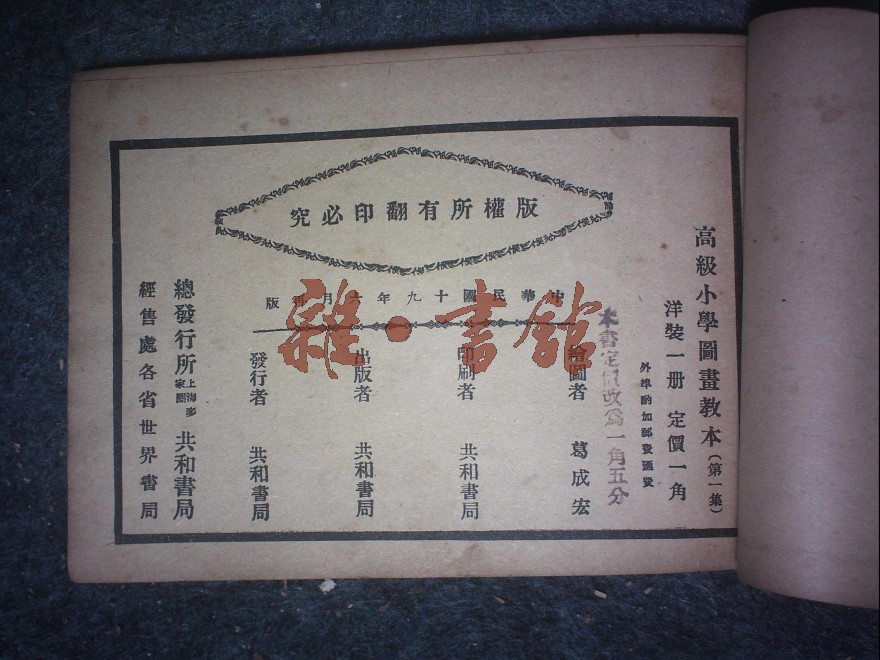 高級小學圖畫教本（第一集）
洋裝一册 定價一角
外埠酌加郵費匯費
本書定價改爲一角五分
版權所有翻印必究
中華民國十九年六月 版
繪圖者 葛成宏
印刷者 共和書局
出版者 共和書局
發行者 共和書局
總發行所 上海麥家圈 共和書局
經售處各省世界書局
雜·書館